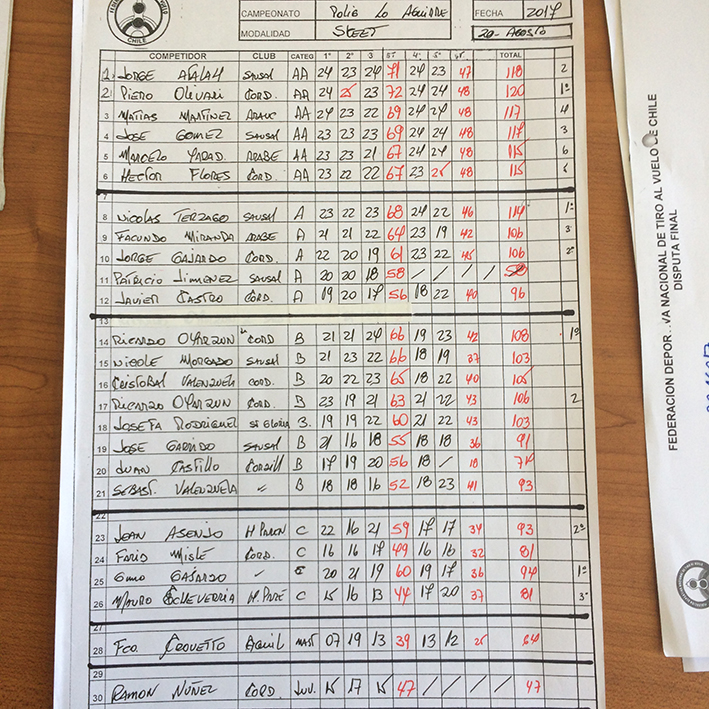 CHILE
CAMPEONATO Polig Lo Aguirre FECHA 2017
MODALIDAD SKEET 20-Agosto
COMPETIDOR CLUB CATEG 1° 2° 3 ST 4° 5° ST TOTAL
1 Jorge Atalah Sausal AA 24 23 24 71 24 23 47 118 2
2 Piero Olivari Cord. AA 24 25 23 72 24 24 48 120 1°
3 Matias Martinez Arauc AA 24 23 22 69 24 24 48 117 4
4 Jose Gomez Sausal AA 23 23 23 69 24 24 48 117 3
5 Marcelo Yarad. Arabe AA 23 23 21 67 24 24 48 115 6
6 Hector Flores Cord. AA 23 22 22 67 23 25 48 115 5
7
8 Nicolas Terzago Sausal A 23 22 23 68 24 22 46 114 1°
9 Facundo Miranda Arabe A 21 21 22 64 23 19 42 106 3
10 Jorge Gajardo Cord. A 22 20 19 61 23 22 45 106 2°
11 Patricio Jimenez Sausal A 20 20 18 58 / / / / 58
12 Javier Castro Cord. A 19 20 17 56 18 22 40 96
13
14 Ricardo Oyarzun Cord B 21 21 24 66 19 23 42 108 1°
15 Nicole Morgado Sausal B 21 23 22 66 18 19 37 103
16 Cristobal Valenzuela Cord. B 20 22 23 65 18 22 40 105
17 Ricardo Oyarzun Cord. B 23 19 21 63 21 22 43 106 2
18 Josefa Rodriguez Sta Gloria B. 19 19 22 60 21 22 43 103
19 Jose Garrido Sausal B 21 16 18 55 18 18 36 91
20 Juan Castillo B 17 19 20 56 18 / 18 74
21 Sebast. Valenzuela " B 18 18 16 52 18 23 41 93
22
23 Jean Asenjo C 22 16 21 59 17 17 34 93 2°
24 Farid Misle Cord. C 16 16 17 49 16 16 32 81
25 Gmo Gajardo " C 20 21 19 60 19 17 36 94 1°
26 Mauro Echeverria C 15 16 13 44 17 20 37 81 3°
27
28 Fco. Croquetto Aguil Mast 07 19 13 39 13 12 25 64
29
30 Ramon Nuñez Cord. Juv. 15 17 15 47 / / / / 47
FEDERACION DEPOR...VA NACIONAL DE TIRO AL VUELO DE CHILE
DISPUTA FINAL